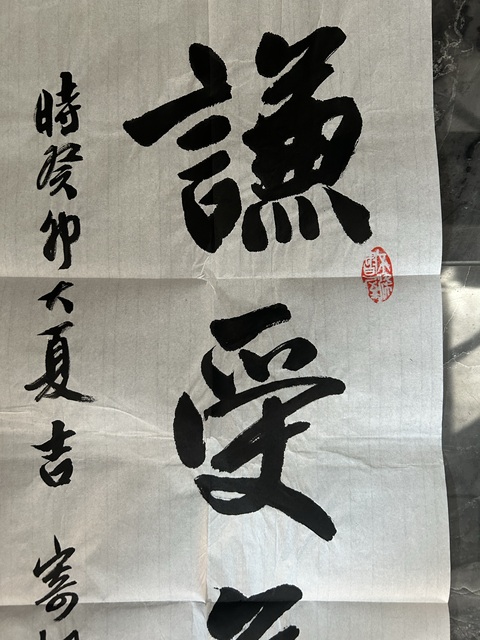 謙受
時癸卯大夏吉寄